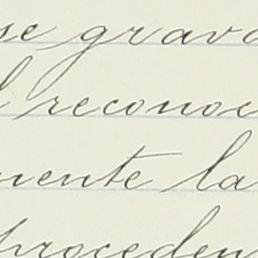 se grava
l reconoc
mente la
proceden